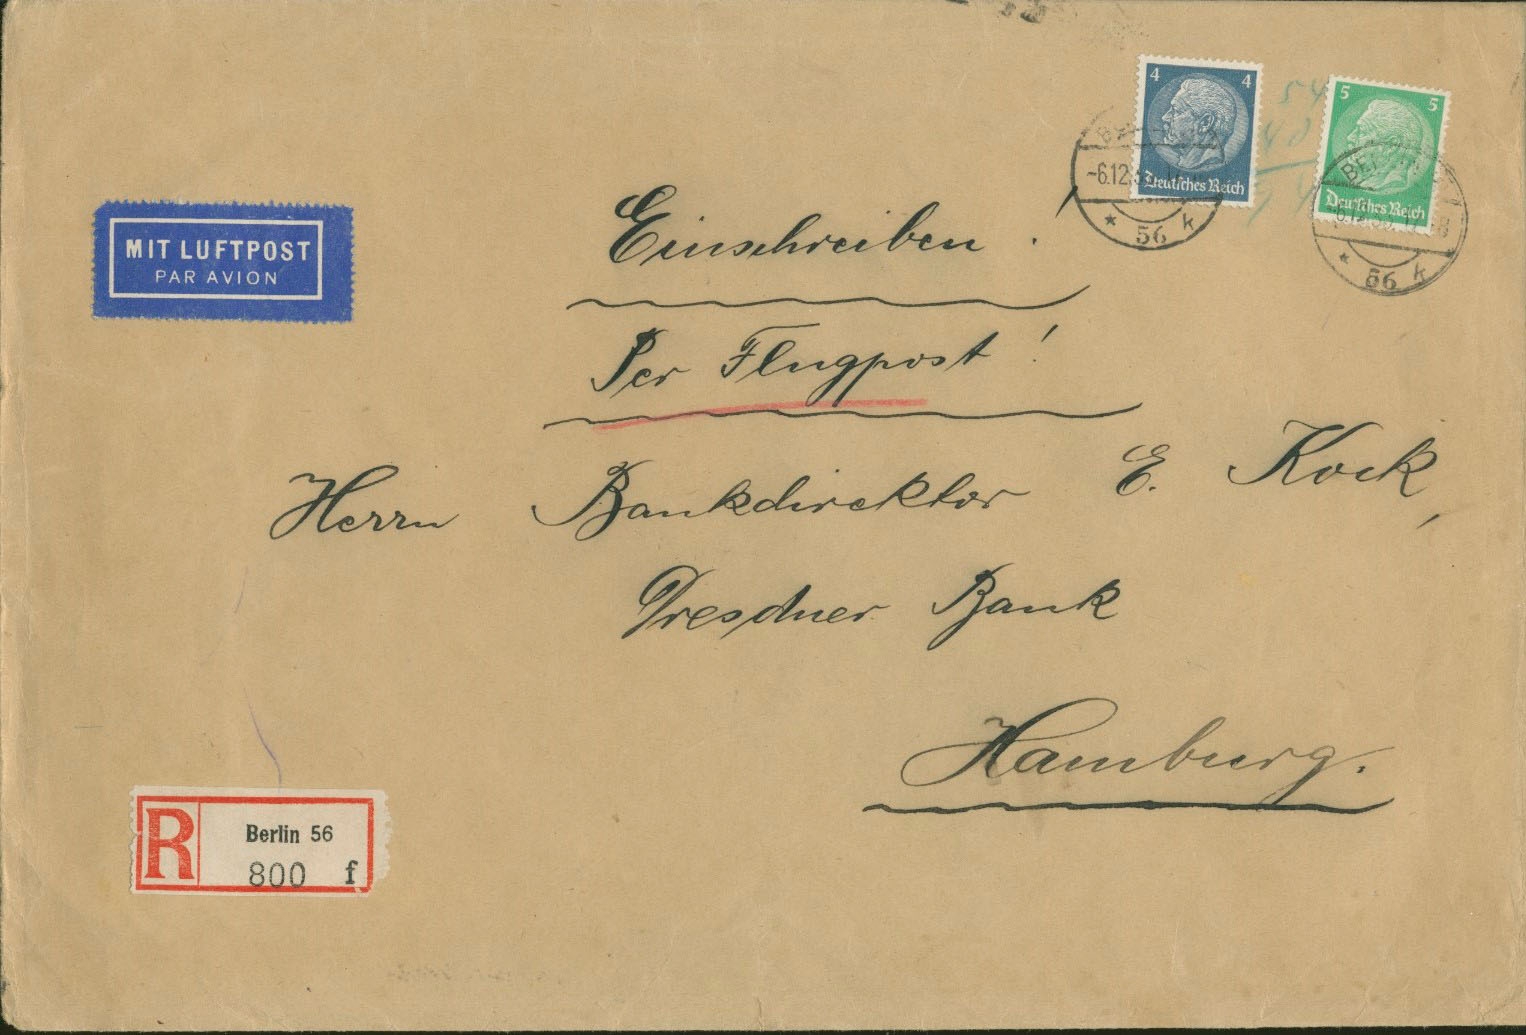 4 4
Deutsches Reich
5 5
Deutsches Reich
-6.12.
* 56 k
* 56 k
54
40
MIT LUFTPOST
PAR AVION
Einschreiben!
Per Flugpost!
Herrn Bankdirektor E. Kock,
Dresdner Bank
Hamburg.
R
Berlin 56
800 f